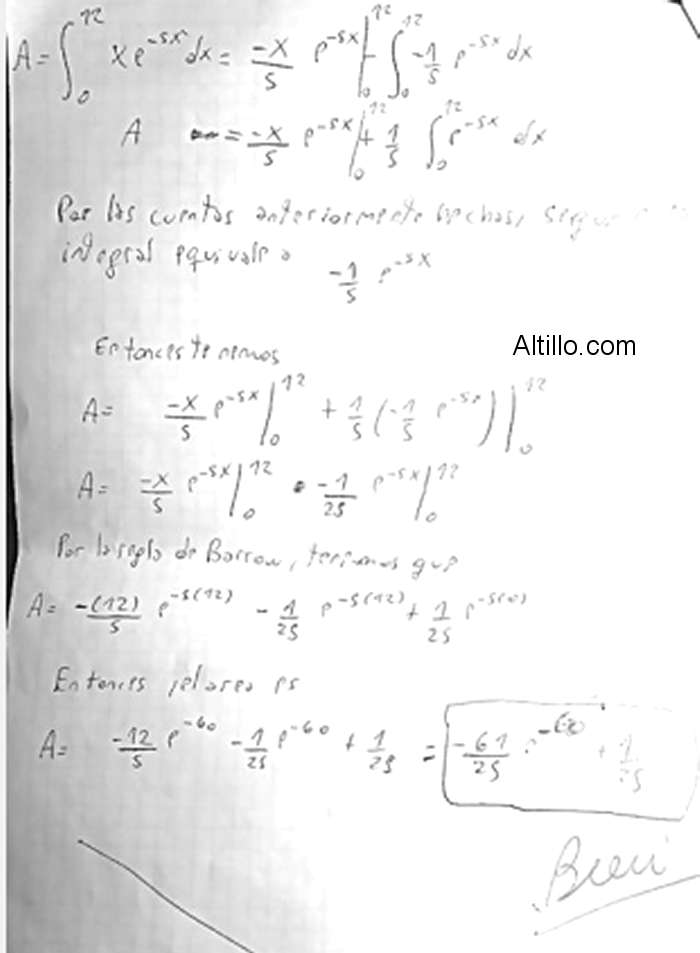 A = ∫₀¹² x e^(-5x) dx = -x/5 e^(-5x) |₀¹² - ∫₀¹² -1/5 e^(-5x) dx
A = -x/5 e^(-5x) |₀¹² + 1/5 ∫₀¹² e^(-5x) dx
Por las cuentas anteriormente hechas,
integral equivale a -1/5 e^(-5x)
Entonces tenemos
Altillo.com
A = -x/5 e^(-5x) |₀¹² + 1/5 (-1/5 e^(-5x)) |₀¹²
A = -x/5 e^(-5x) |₀¹² - 1/25 e^(-5x) |₀¹²
Por la regla de Barrow, tenemos que
A = -(12)/5 e^(-5(12)) - 1/25 e^(-5(12)) + 1/25 e^(-5(0))
Entonces, el area es
A = -12/5 e^(-60) - 1/25 e^(-60) + 1/25 = -61/25 e^(-60) + 1/25